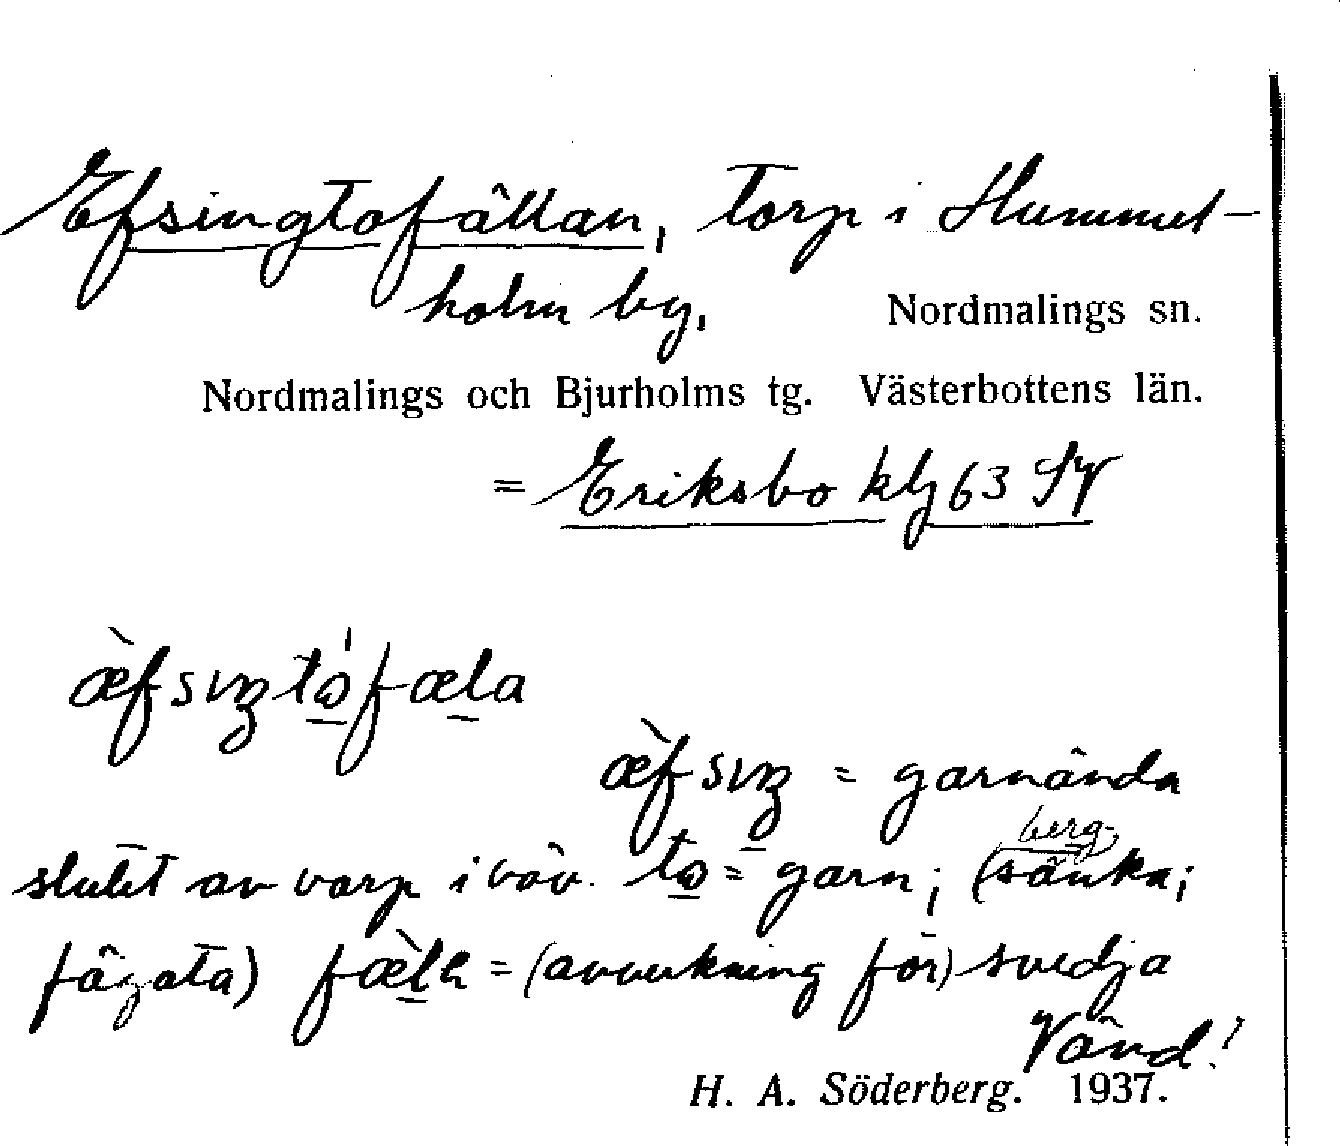 Efsingtofällan, torp i Hummel-
holm by. Nordmalings sn.
Nordmalings och Bjurholms tg. Västerbottens län.
= Eriksbo klj 63 SV
æ̀fsıŋtófæla
æ̀fsıŋ = garnända
slutet av varp i väv. to = garn; (bergsänka;
fägata) fæ̀la = (avverkning för) svedja
Vänd!
H. A. Söderberg. 1937.